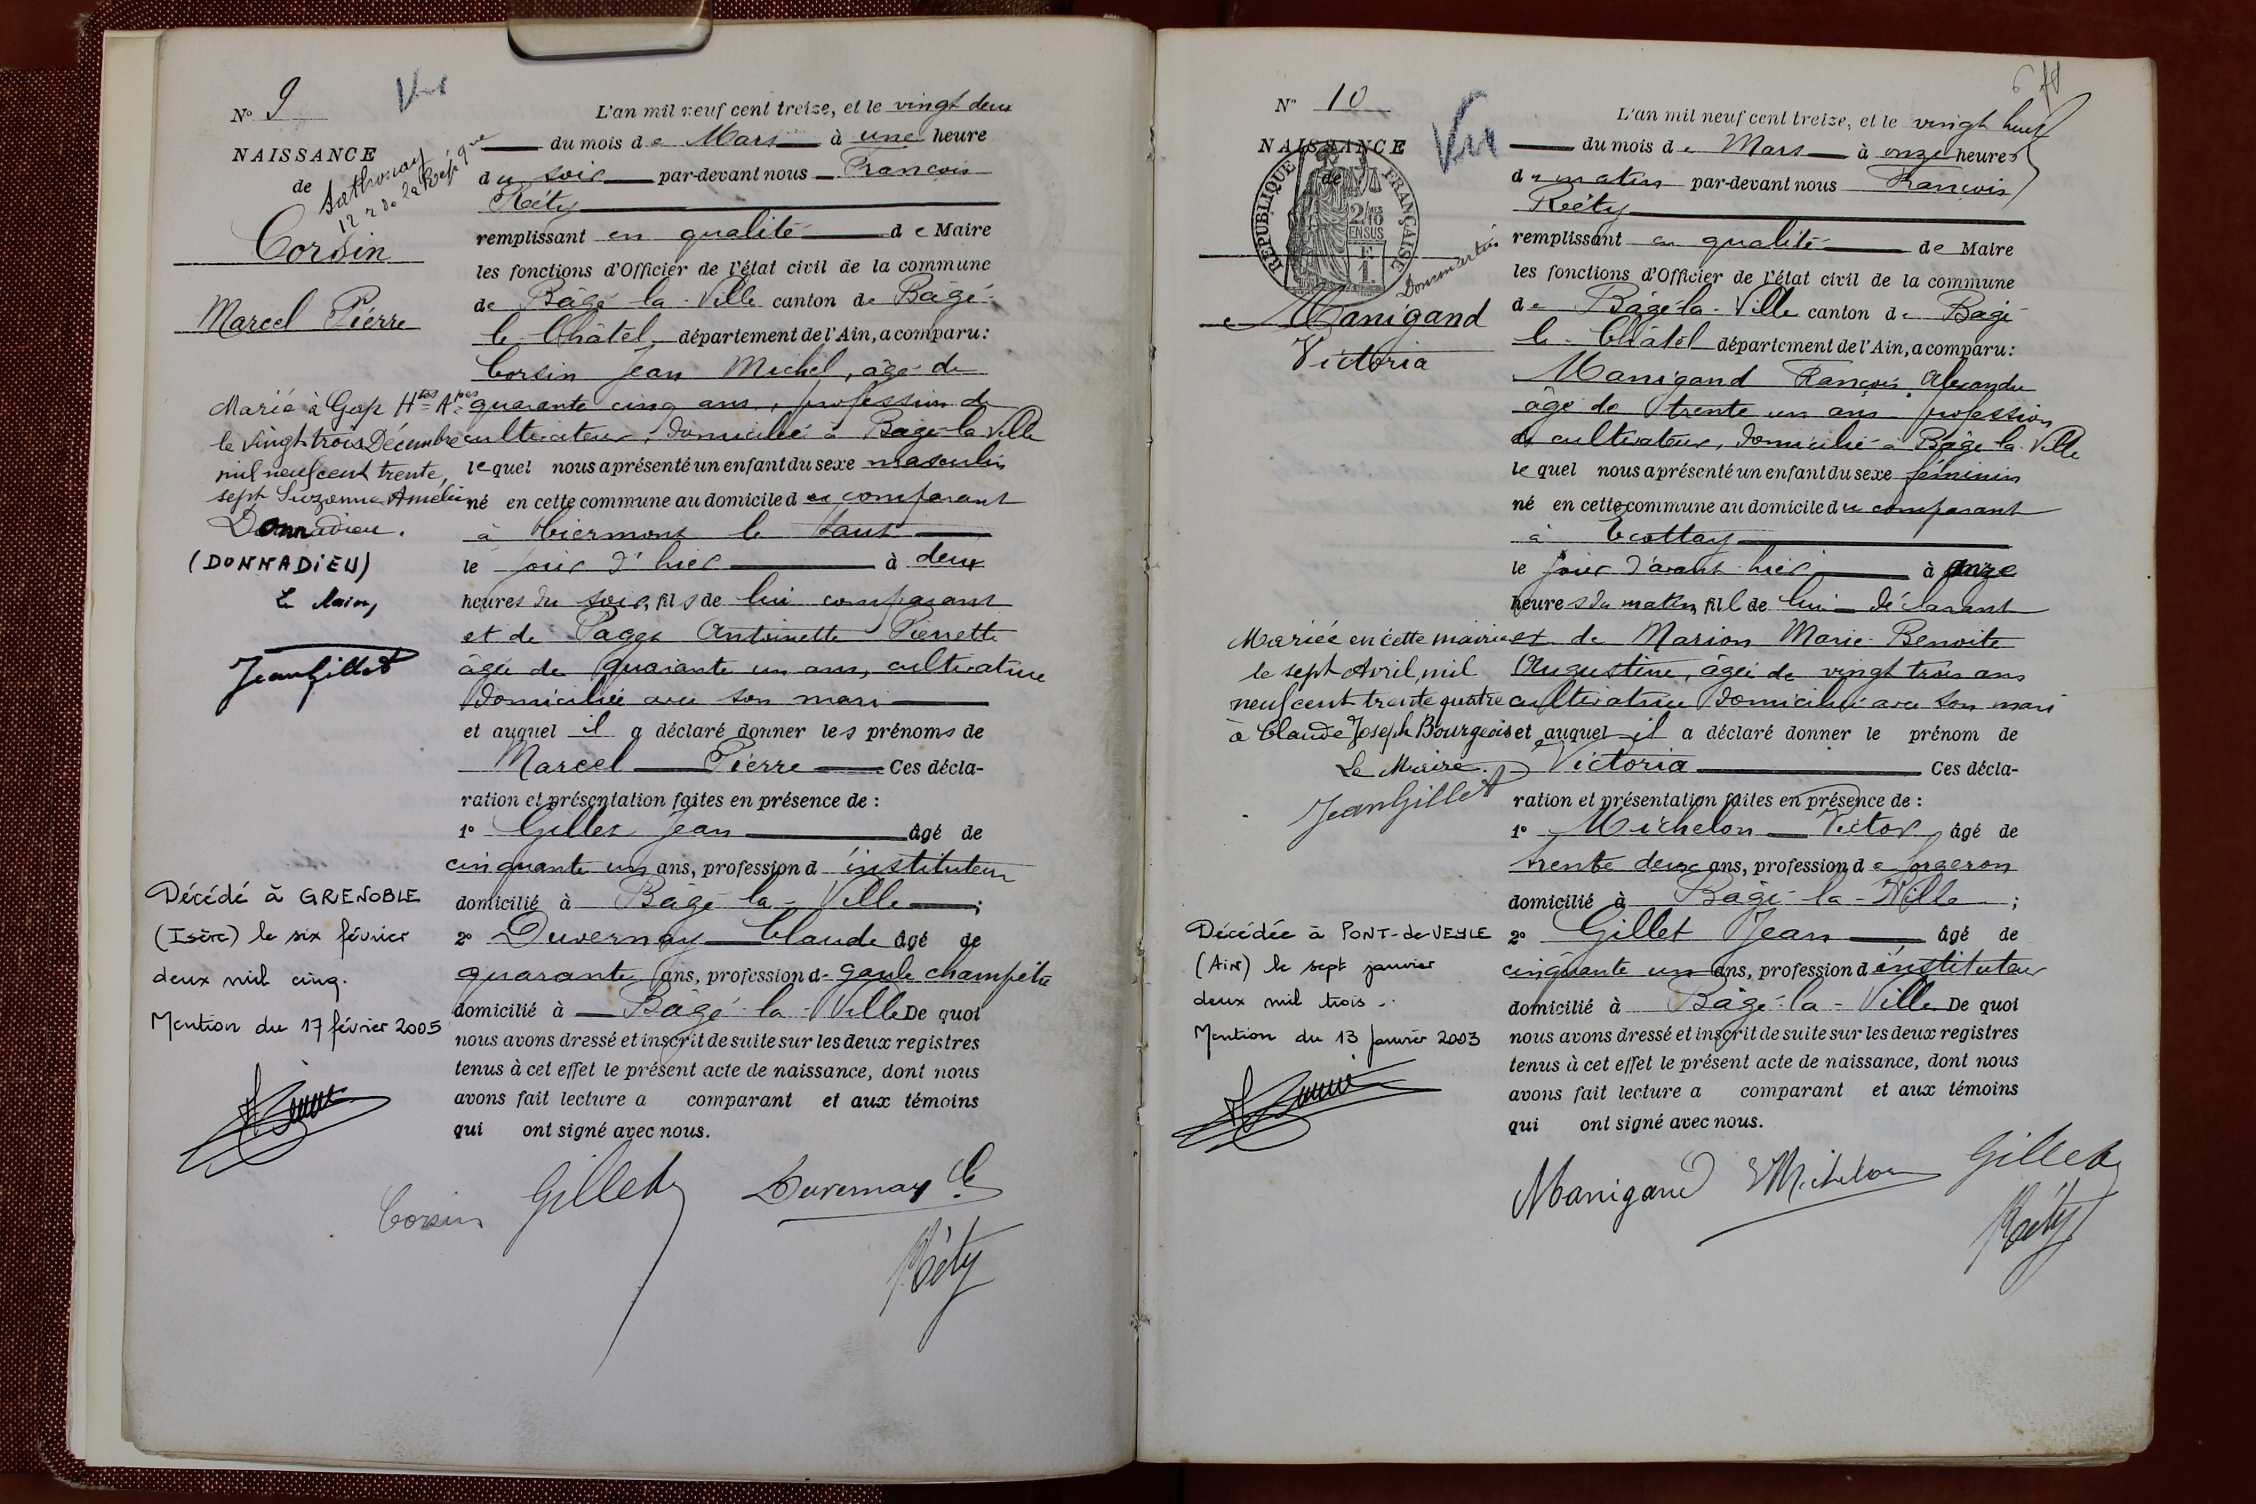 N° 9
Vu
NAISSANCE
de
Sathonay
12 r de la Rép que
Corsin
Marcel Pierre
L'an mil neuf cent treize, et le vingt deux
du mois de Mars à une heure
du soir par-devant nous François
Réty
remplissant en qualité de Maire
les fonctions d'Officier de l'état civil de la commune
de Bâgé-la-Ville canton de Bâgé-
le-Châtel département de l'Ain, a comparu :
Corsin Jean Michel, âgé de
quarante cinq ans, profession de
cultivateur, domicilié à Bâgé-la-Ville
lequel nous a présenté un enfant du sexe masculin
né en cette commune au domicile du comparant
à le haut
le jour d'hier à deux
heures du soir, fils de lui comparant
et de Antoinette Pierrette
âgée de quarante un ans, cultivatrice
domiciliée avec son mari
et auquel il a déclaré donner les prénoms de
Marcel Pierre Ces décla-
ration et présentation faites en présence de :
1° Gillet Jean âgé de
cinquante un ans, profession d instituteur
domicilié à Bâgé-la-Ville ;
2° Duvernay Claude âgé de
quarante ans, profession de garde champêtre
domicilié à Bâgé-la-Ville De quoi
nous avons dressé et inscrit de suite sur les deux registres
tenus à cet effet le présent acte de naissance, dont nous
avons fait lecture a comparant et aux témoins
qui ont signé avec nous.
Corsin Gillet Duvernay C
Réty
Marié à Gap Htes Apes
le vingt trois Décembre
mil neuf cent trente
sept Suzanne Amélie
Donnadieu.
(DONNADIEU)
Le Maire,
Jean Gillet
Décédé à GRENOBLE
(Isère) le six février
deux mil cinq.
Mention du 17 février 2005
N° 10
Vu
NAISSANCE
de
RÉPUBLIQUE FRANÇAISE
2/10
EN SUS
Dommartin
Manigand
Victoria
L'an mil neuf cent treize, et le vingt huit
du mois de Mars à onze heures
du matin par-devant nous François
Réty
remplissant en qualité de Maire
les fonctions d'Officier de l'état civil de la commune
de Bâgé-la-Ville canton de Bâgé-
le-Châtel département de l'Ain, a comparu :
Manigand François Alexandre
âgé de trente un ans profession
de cultivateur, domicilié à Bâgé-la-Ville
lequel nous a présenté un enfant du sexe féminin
né en cette commune au domicile du comparant
à
le jour d'avant hier à onze
heures du matin, fil de lui déclarant
et de Marion Marie Benoite
Augustine, âgée de vingt trois ans
cultivatrice domiciliée avec son mari
et auquel il a déclaré donner le prénom de
Victoria Ces décla-
ration et présentation faites en présence de :
1° Michelon Victor âgé de
trente deux ans, profession de forgeron
domicilié à Bâgé-la-Ville ;
2° Gillet Jean âgé de
cinquante un ans, profession d instituteur
domicilié à Bâgé-la-Ville De quoi
nous avons dressé et inscrit de suite sur les deux registres
tenus à cet effet le présent acte de naissance, dont nous
avons fait lecture a comparant et aux témoins
qui ont signé avec nous.
Manigand Michelon Gillet
Réty
Mariée en cette mairie
le sept Avril, mil
neuf cent trente quatre
à Claude Joseph Bourgeois
Le Maire.
Jean Gillet
Décédée à PONT-de-VEYLE
(AiN) le sept janvier
deux mil trois.
Mention du 13 Janvier 2003